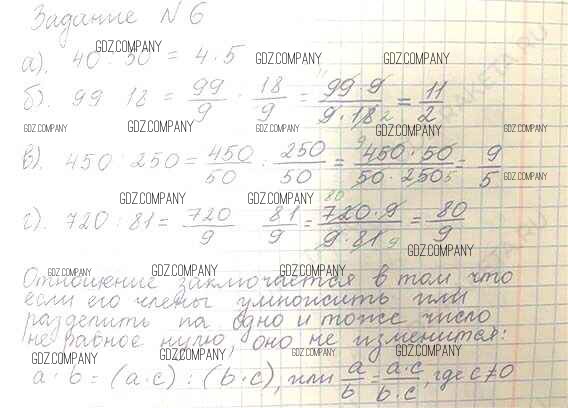 Задание № 6
GDZ.COMPANY GDZ.COMPANY GDZ.COMPANY
а). 40 : 50 = 4 · 5
б). 99 18 = 99/9 · 18/9 = 99 · 9/9 · 18 2 = 11/2
GDZ.COMPANY GDZ.COMPANY GDZ.COMPANY GDZ.COMPANY
в). 450 : 250 = 450/50 : 250/50 = 450 · 50/50 · 250 5 = 9/5
GDZ.COMPANY
GDZ.COMPANY GDZ.COMPANY
г). 720 : 81 = 720/9 81/9 = 80 720 · 9/9 · 81 9 = 80/9
GDZ.COMPANY GDZ.COMPANY GDZ.COMPANY GDZ.COMPANY
Отношение заключается в том что
если его члены умножить или
разделить на одно и тоже число
не равное нулю, оно не изменится:
GDZ.COMPANY GDZ.COMPANY GDZ.COMPANY GDZ.COMPANY
a · b = (a · c) : (b · c), или a/b = a · c/b · c, где c ≠ 0